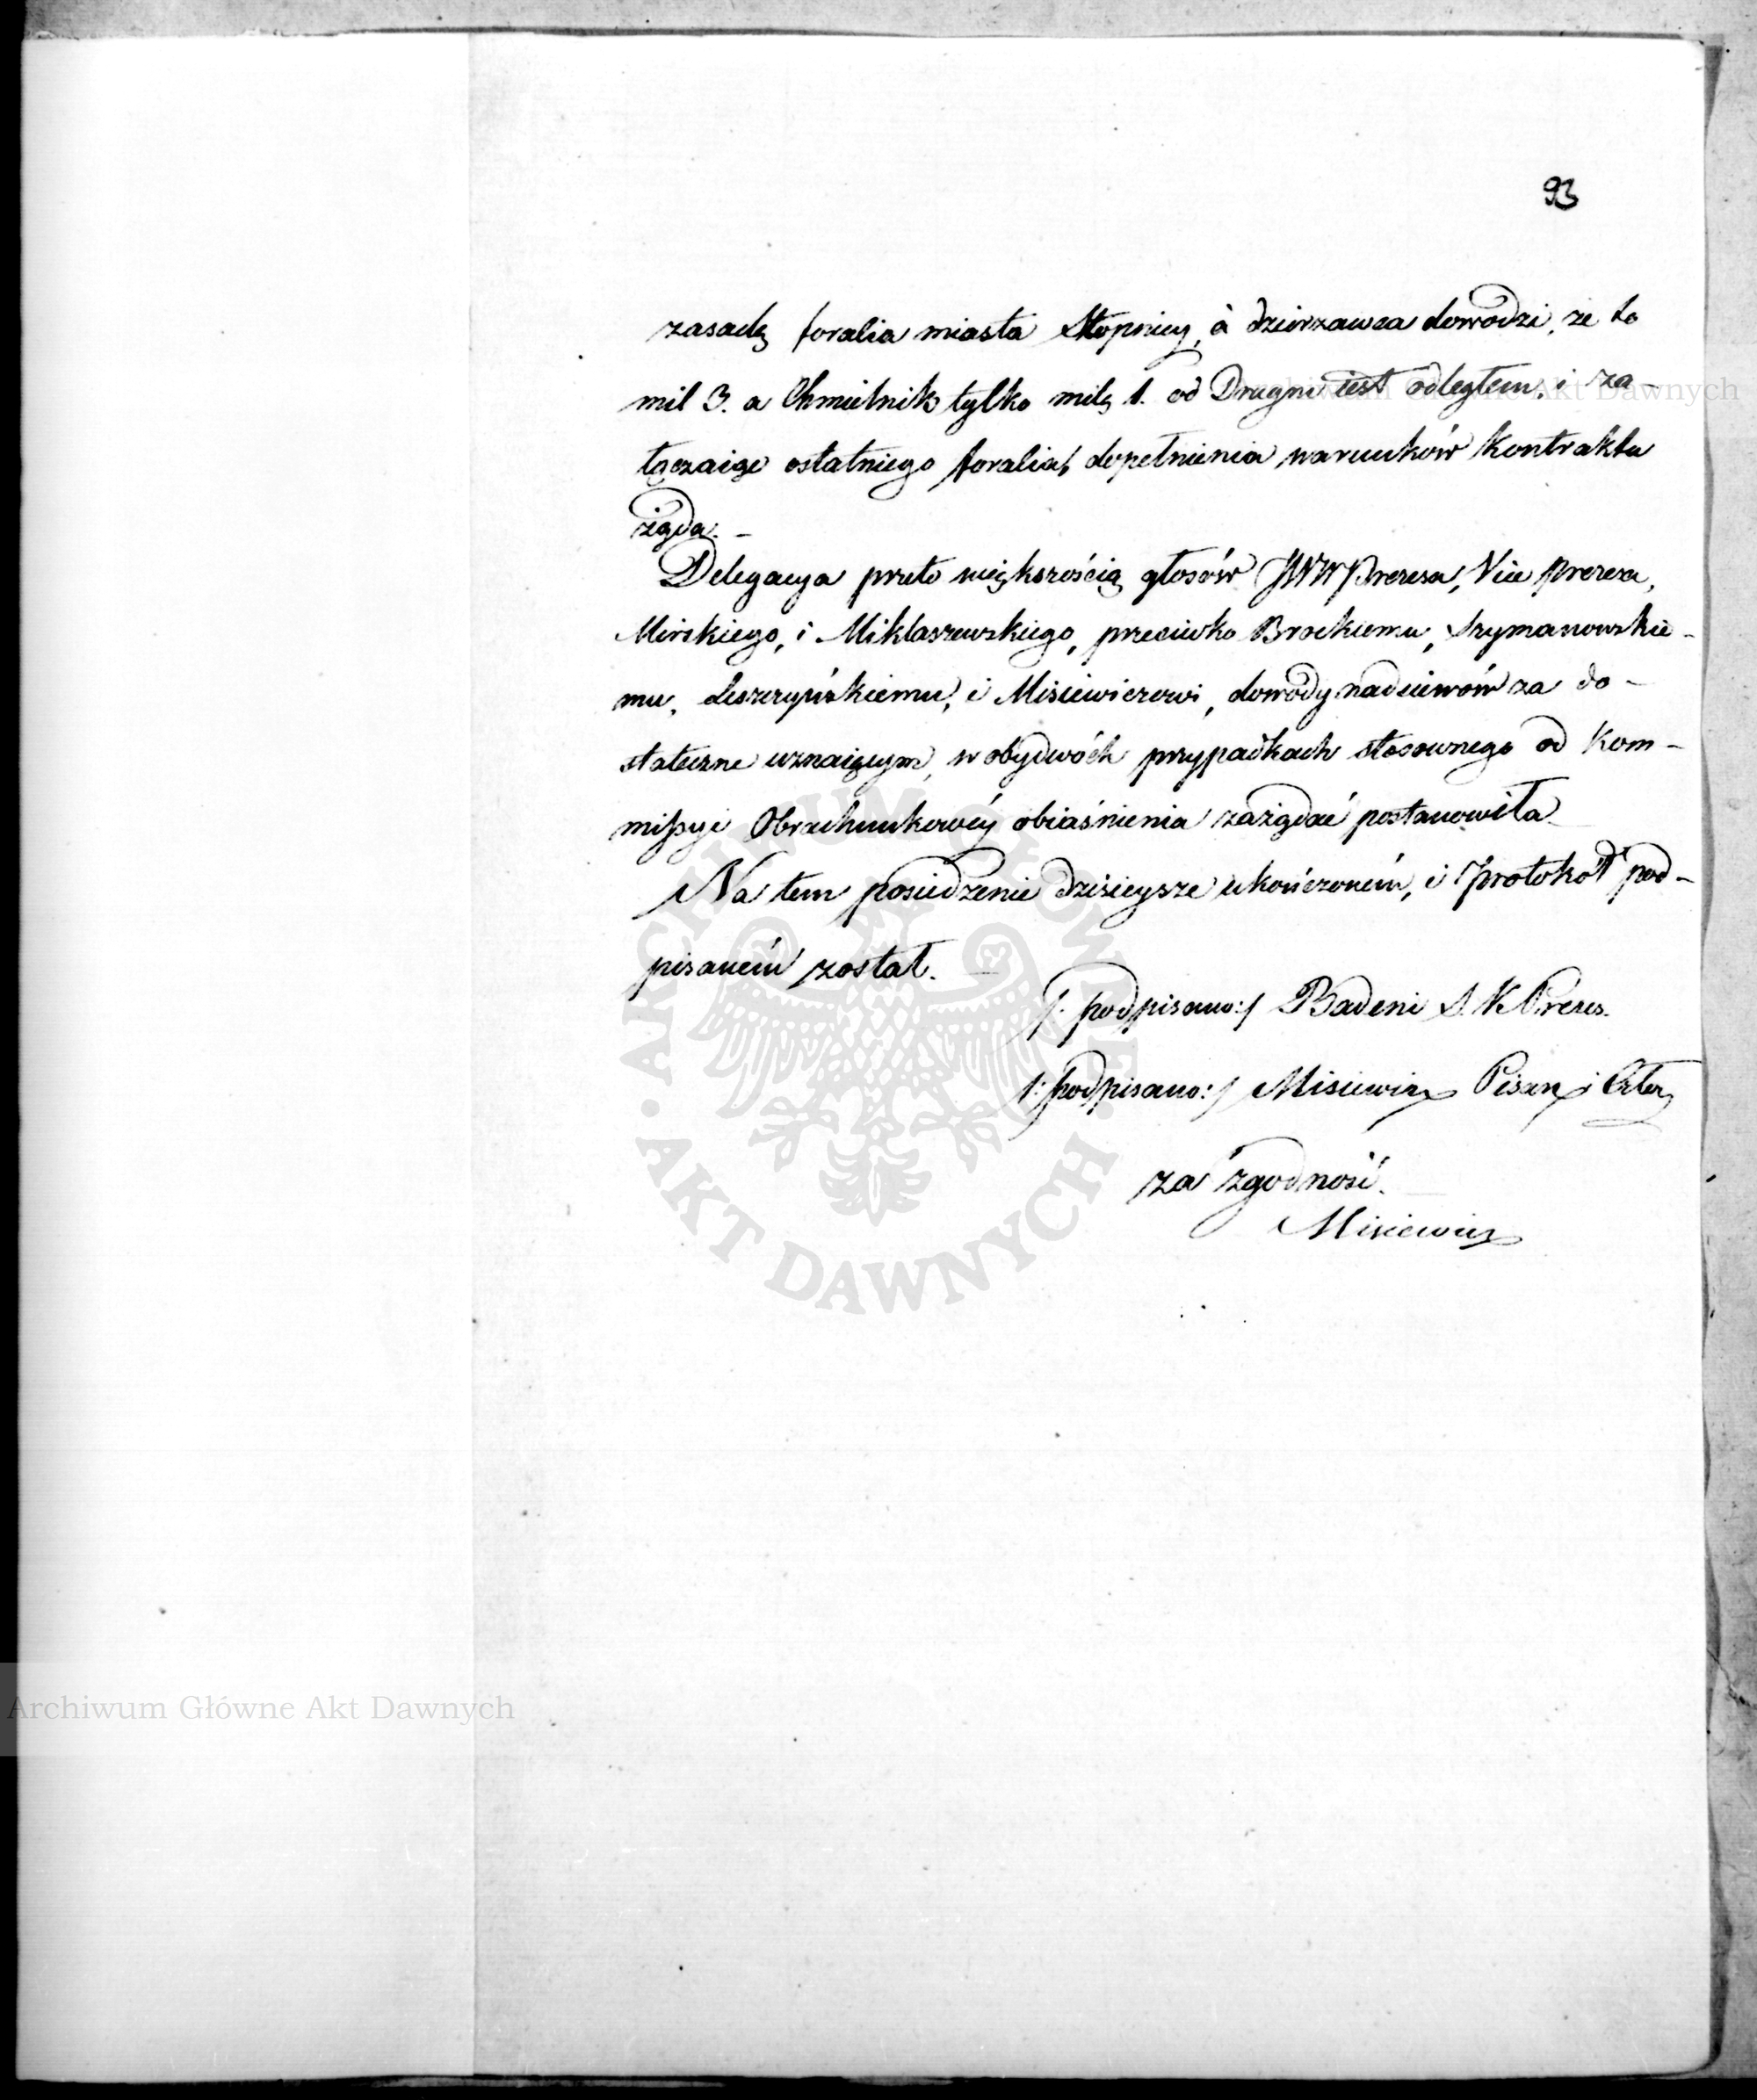 93
zasadę foralia miasta Stopnicy, à dzierzawca dowodzi, że to
mil 3. a Chmielnik tylko milę 1. od Drugni iest odległem, i za-
łączaiąc ostatniego foralia, dopełnienia warunków Kontraktu
żąda. -
Delegacya przeto większością głosów JWW Prezesa, Vice Prezesa,
Mirskiego, i Miklaszewskiego, przeciwko Brockiemu, Szymanowskie-
mu, Leszczyńskiemu, i Misiewiczowi, dowody nadsiewów za do-
stateczne uznaiącym, w obydwóch przypadkach stosownego od Kom-
missyi Obrachunkowéy obiaśnienia zażądać postanowiła
Na tem posiedzenie dzisieysze ukończoném, i Protokół pod-
pisaném został. -
/: podpisano:/ Badeni S. K. Prezes.
/: podpisano:/ Misiewicz Pisarz i Człon.
za zgodność.
Misiewicz
Archiwum Główne Akt Dawnych
ARCHIWUM GŁÓWNE AKT DAWNYCH
Archiwum Główne Akt Dawnych